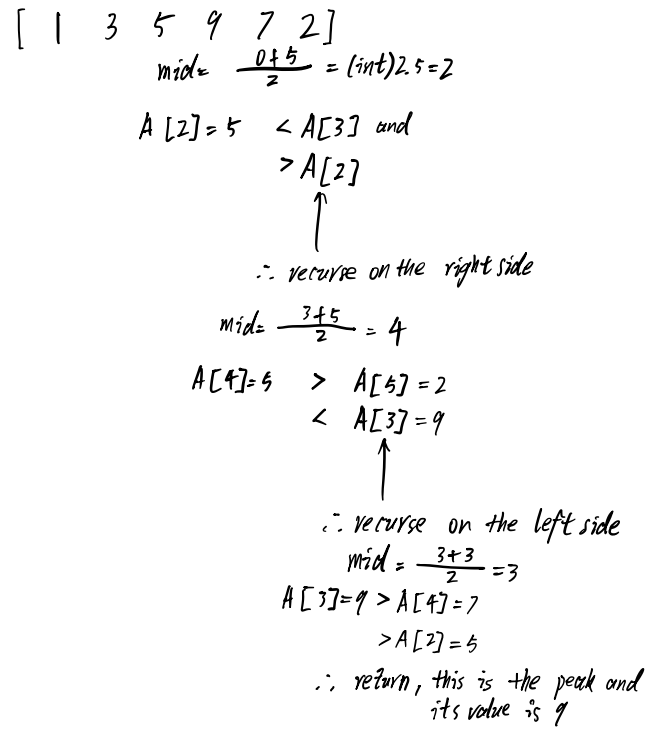 [ 1 3 5 9 7 2 ]
mid = (0+5)/2 = (int)2.5 = 2
A[2] = 5 < A[3] and
> A[2]
∴ recurse on the right side
mid = (3+5)/2 = 4
A[4] = 5 > A[5] = 2
< A[3] = 9
∴ recurse on the left side
mid = (3+3)/2 = 3
A[3] = 9 > A[4] = 7
> A[2] = 5
∴ return, this is the peak and
its value is 9